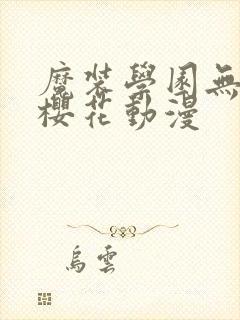 魔裝學園無
櫻花動漫
烏雲